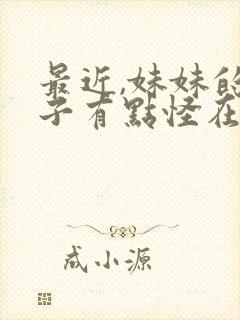 最近,妹妹的
子有點怪在
成小源